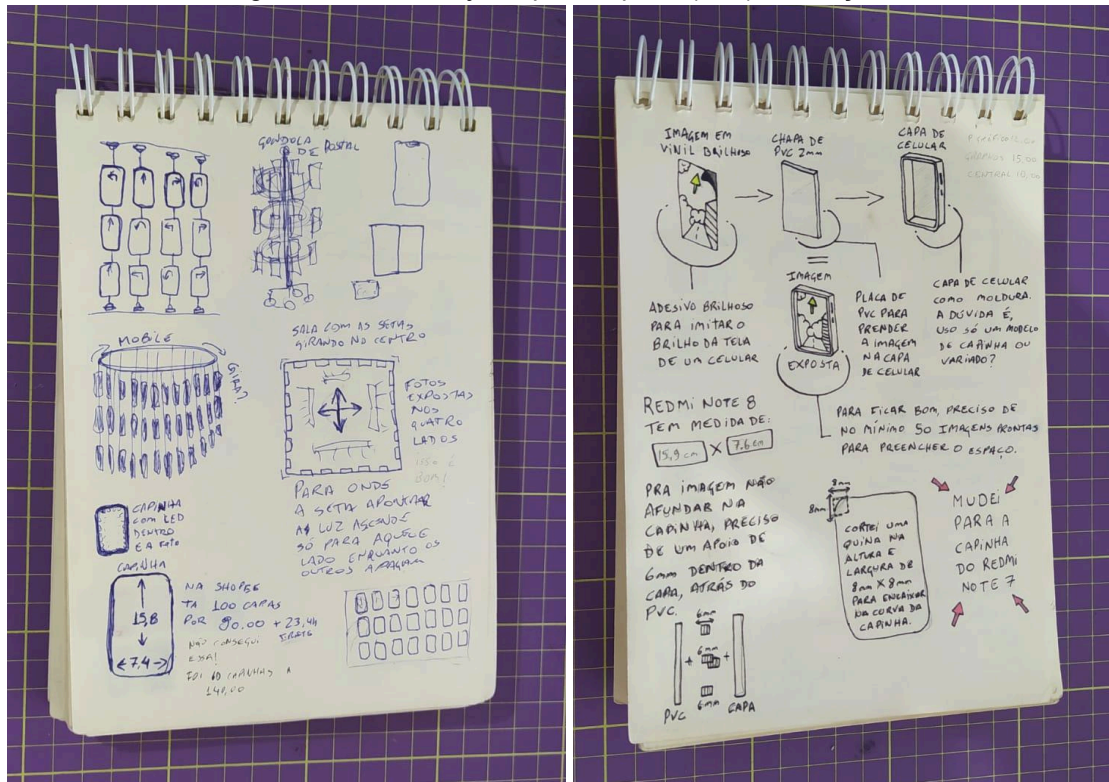 GONDOLA
DE POSTAL
MOBILE
GIRA?
SALA COM AS SETAS
GIRANDO NO CENTRO
FOTOS
EXPOSTAS
NOS
QUATRO
LADOS
isso é
BOM!
PARA ONDE
A SETA APONTAR
A LUZ ASCENDE
SÓ PARA AQUELE
LADO ENQUANTO OS
OUTROS APAGAM
CAPINHA
COM LED
DENTRO
E A FOTO
CAPINHA
15,8
7,4
NA SHOPEE
TA 100 CAPAS
POR 90.00 + 23,44
FRETE
NÃO CONSEGUI
ESSA!
FOI 60 CAPINHAS A
140,00
IMAGEM EM
VINIL BRILHOSO
CHAPA DE
PVC 2mm
CAPA DE
CELULAR
GRAPHOS 15,00
CENTRAL 18,00
ADESIVO BRILHOSO
PARA IMITAR O
BRILHO DA TELA
DE UM CELULAR
=
IMAGEM
EXPOSTA
PLACA DE
PVC PARA
PRENDER
A IMAGEM
NA CAPA
DE CELULAR
CAPA DE CELULAR
COMO MOLDURA.
A DÚVIDA É,
USO SÓ UM MODELO
DE CAPINHA OU
VARIADO?
PARA FICAR BOM, PRECISO DE
NO MÍNIMO 50 IMAGENS PRONTAS
PARA PREENCHER O ESPAÇO.
REDMI NOTE 8
TEM MEDIDA DE:
15,9 cm X 7.6 cm
PRA IMAGEM NÃO
AFUNDAR NA
CAPINHA, PRECISO
DE UM APOIO DE
6mm DENTRO DA
CAPA, ATRÁS DO
PVC.
6mm
+ 6mm +
6mm
PVC
CAPA
8mm
8mm
CORTEI UMA
QUINA NA
ALTURA E
LARGURA DE
8mm X 8mm
PARA ENCAIXAR
NA CURVA DA
CAPINHA.
MUDEI
PARA A
CAPINHA
DO REDMI
NOTE 7